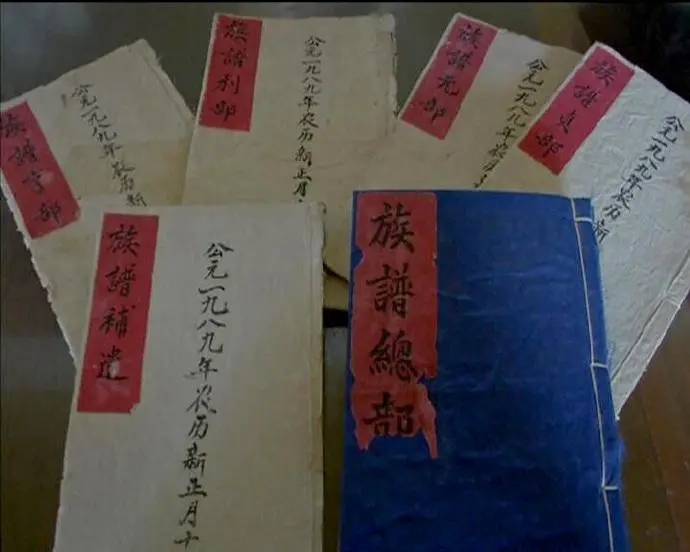 族譜亨部
公元一九八九年农历新
族譜利部
公元一九八九年农历新正月
族譜元部
公元一九八九年农历
族譜贞部
公元一九八九年农历新
族譜補遺
公元一九八九年农历新正月十
族譜總部